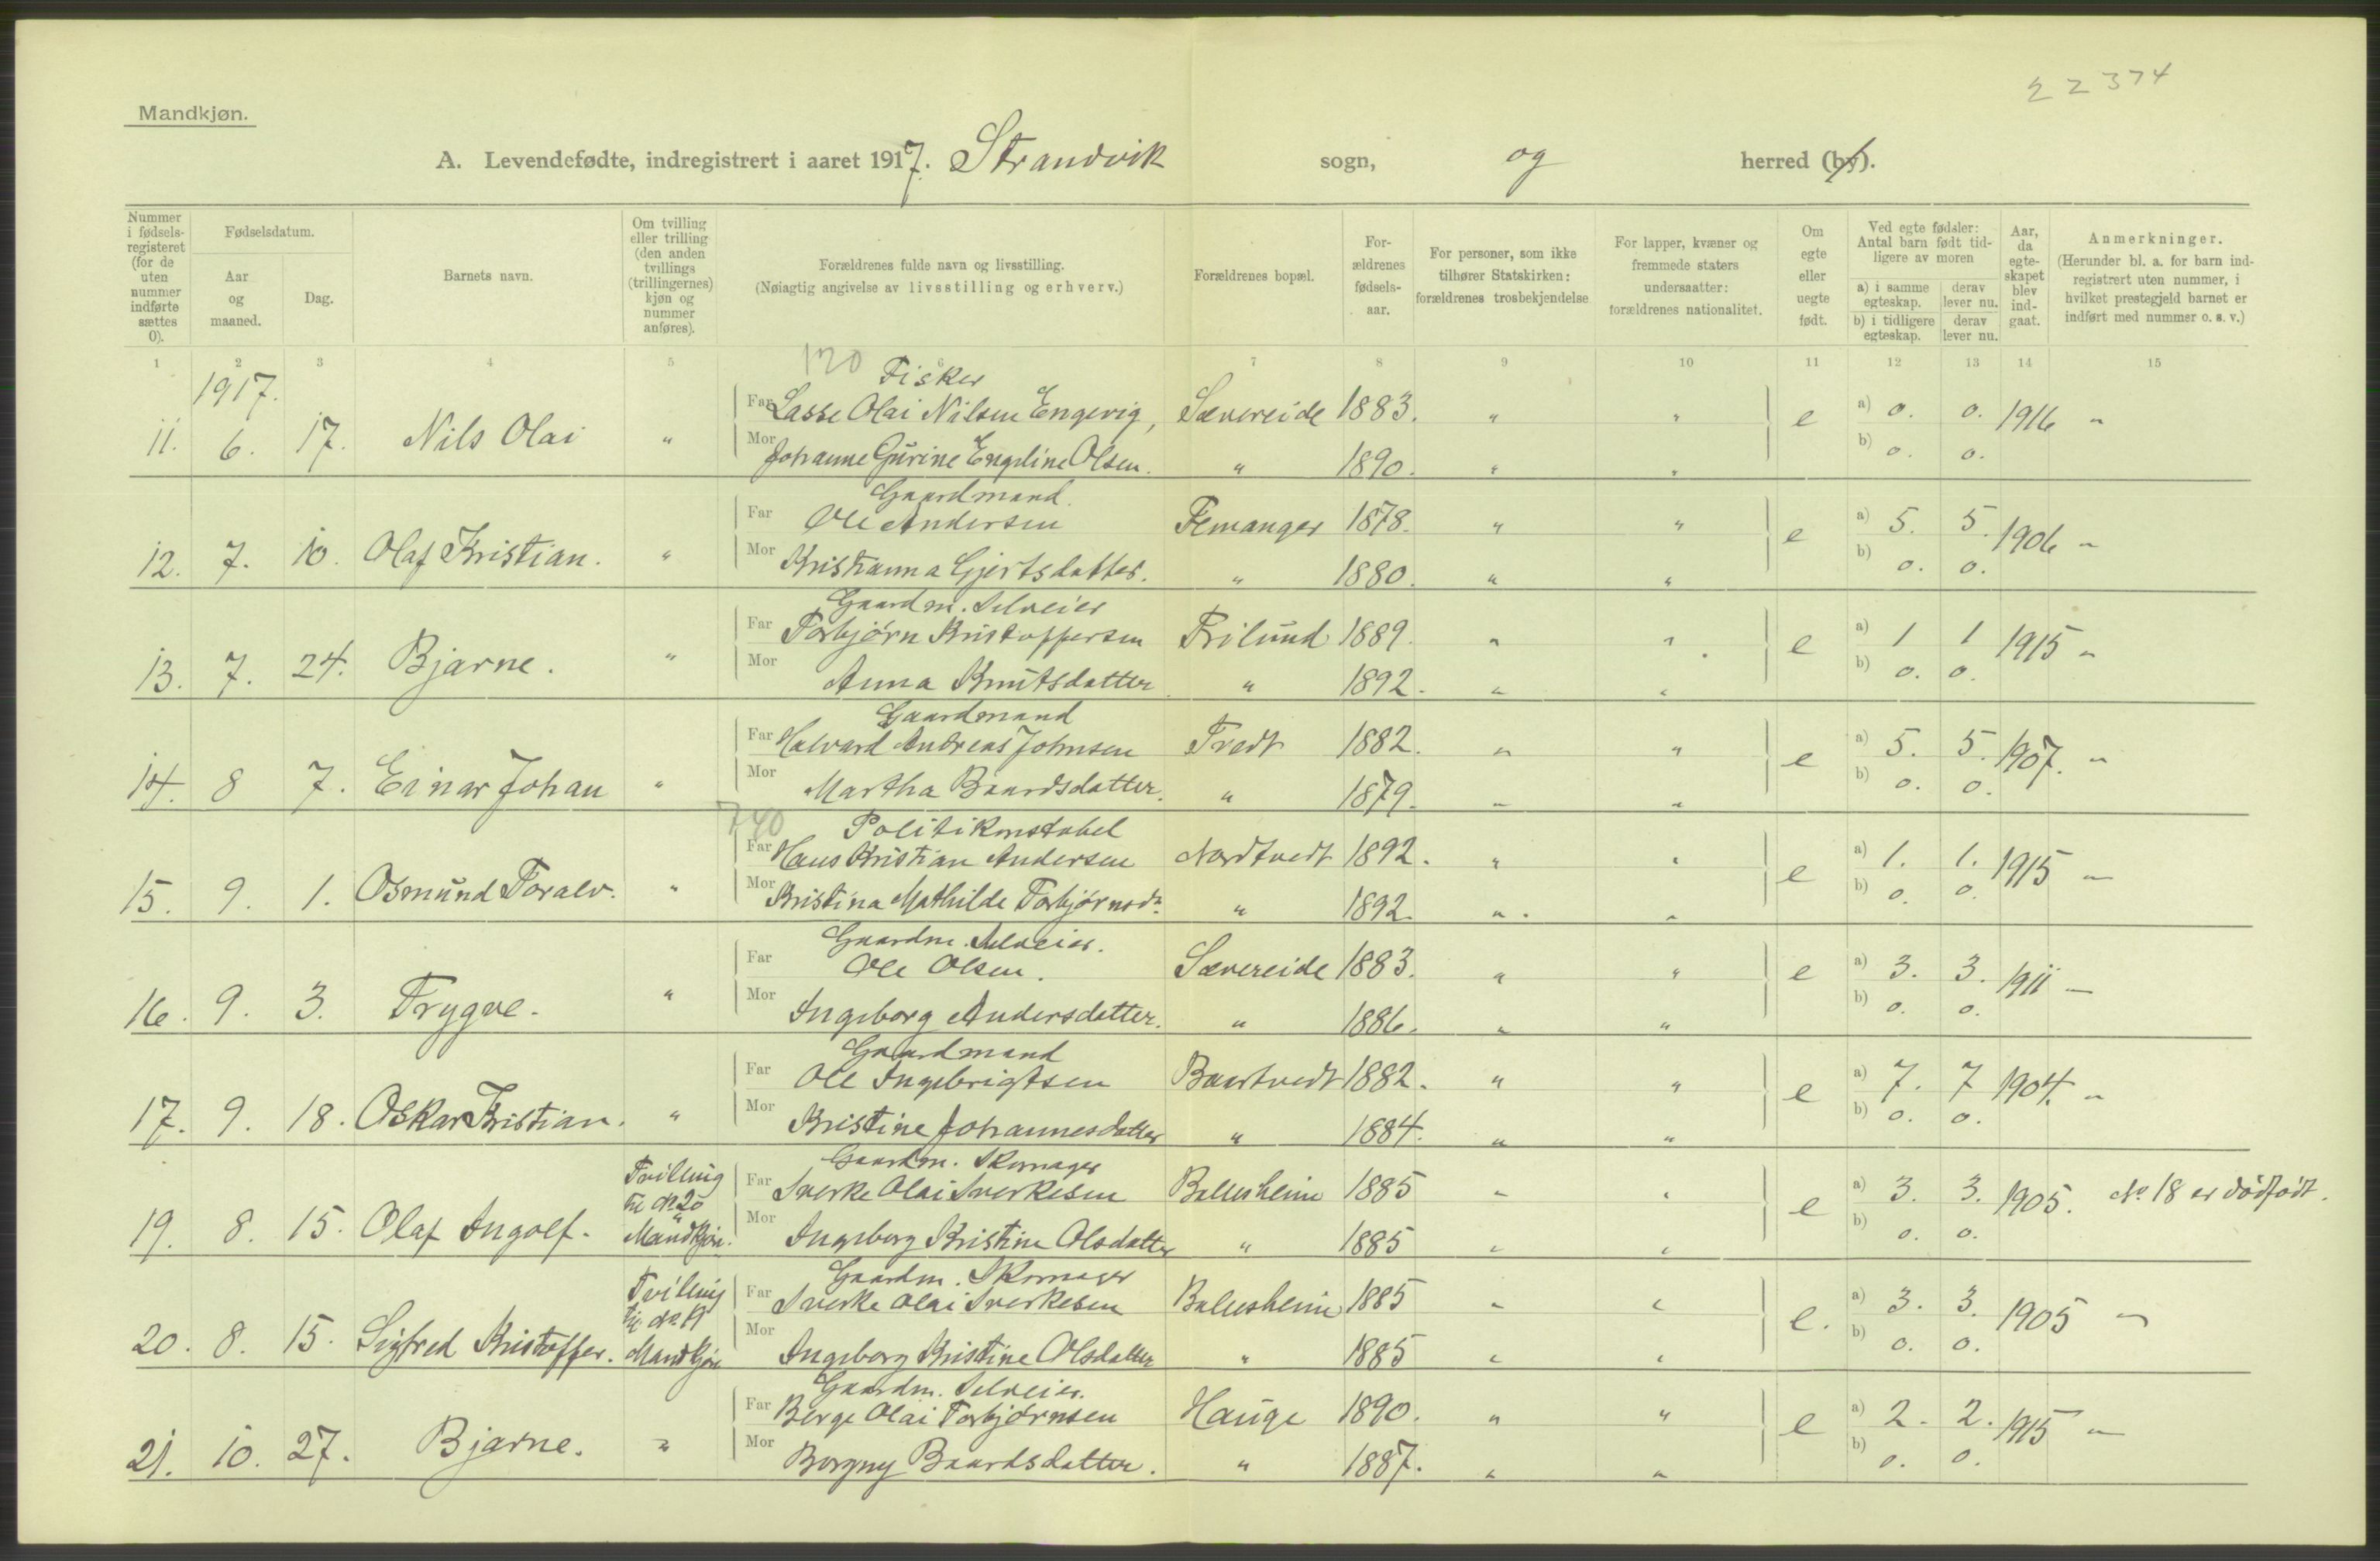 22374
Mandkjøn.
A. Levendefødte, indregistrert i aaret 1917. Strandvik sogn, og herred (by).
Nummer i fødsels-registeret (for de uten nummer indførte sættes 0).
Fødselsdatum.
Aar og maaned.
Dag.
Barnets navn.
Om tvilling eller trilling (den anden tvillings (trillingernes) kjøn og nummer anføres).
Forældrenes fulde navn og livsstilling.
(Nøiagtig angivelse av livsstilling og erhverv.)
Forældrenes bopæl.
For-ældrenes fødsels-aar.
For personer, som ikke tilhører Statskirken: forældrenes trosbekjendelse
For lapper, kvæner og fremmede staters undersaatter: forældrenes nationalitet.
Om egte eller uegte født.
Ved egte fødsler: Antal barn født tid-ligere av moren
a) i samme egteskap. derav lever nu.
b) i tidligere egteskap. derav lever nu.
Aar, da egte-skapet blev ind-gaat.
Anmerkninger.
(Herunder bl. a. for barn ind-registrert uten nummer, i hvilket prestegjeld barnet er indført med nummer o. s. v.)
1 2 3 4 5 6 7 8 9 10 11 12 13 14 15
1917. 120 Fisker
Far Lasse Olai Nilsen Engevig, Sævereide 1883. " " a) 0. 0.
11. 6. 17. Nils Olai " e 1916 "
Mor Johanne Gurine Engeline Olsen. " 1890. " " b) 0. 0.
Gaardmand.
Far Ole Andersen Femanger 1878. " " a) 5. 5.
12. 7. 10. Olaf Kristian. " e 1906 "
Mor Kristianna Gjertsdatter. " 1880. " " b) 0. 0.
Gaardm. Selveier
Far Torbjørn Kristoffersen Frilund 1889. " " a) 1 1
13. 7. 24. Bjarne. " e 1915 "
Mor Anna Knutsdatter " 1892. " " b) 0. 0.
Gaardmand
Far Halvard Andreas Johnsen Tvedt 1882. " " a) 5. 5.
14. 8 7. Einar Johan " e 1907. "
Mor Martha Baardsdatter. " 1879. " " b) 0. 0.
740 Politikonstabel
Far Hans Kristian Andersen Nordtvedt 1892. " " a) 1. 1.
15. 9. 1. Osmund Toralv. " e 1915 "
Mor Kristina Mathilde Torbjørnsdr. " 1892. " " b) 0. 0.
Gaardm. Selveier.
Far Ole Olsen. Sævereide 1883. " " a) 3. 3.
16. 9. 3. Trygve. " e 1911 "
Mor Ingeborg Andersdatter. " 1886. " " b) 0. 0.
Gaardmand
Far Ole Ingebrigtsen Baartvedt 1882. " " a) 7. 7
17. 9. 18. Oskar Kristian. " e 1904. "
Mor Kristine Johannesdatter " 1884. " " b) 0. 0.
Gaardm. Skomager
Far Sverke Olai Sverkesen Ballesheim 1885 " " a) 3. 3.
19. 8. 15. Olaf Ingolf. Tvilling til No 20 Mandkjøn. e 1905. No 18 er dødfødt.
Mor Ingeborg Kristine Olsdatter " 1885 " " b) 0. 0.
Gaardm. Skomager
Far Sverke Olai Sverkesen Ballesheim 1885 " " a) 3. 3.
20. 8. 15. Sigfred Kristoffer. Tvilling til No 19 Mandkjøn e. 1905 "
Mor Ingeborg Kristine Olsdatter " 1885 " " b) 0. 0.
Gaardm. Selveier.
Far Berge Olai Torbjørnsen Hauge 1890. " " a) 2. 2.
21. 10. 27. Bjarne. " e 1915 "
Mor Borgny Baardsdatter. " 1887. " " b) 0. 0.